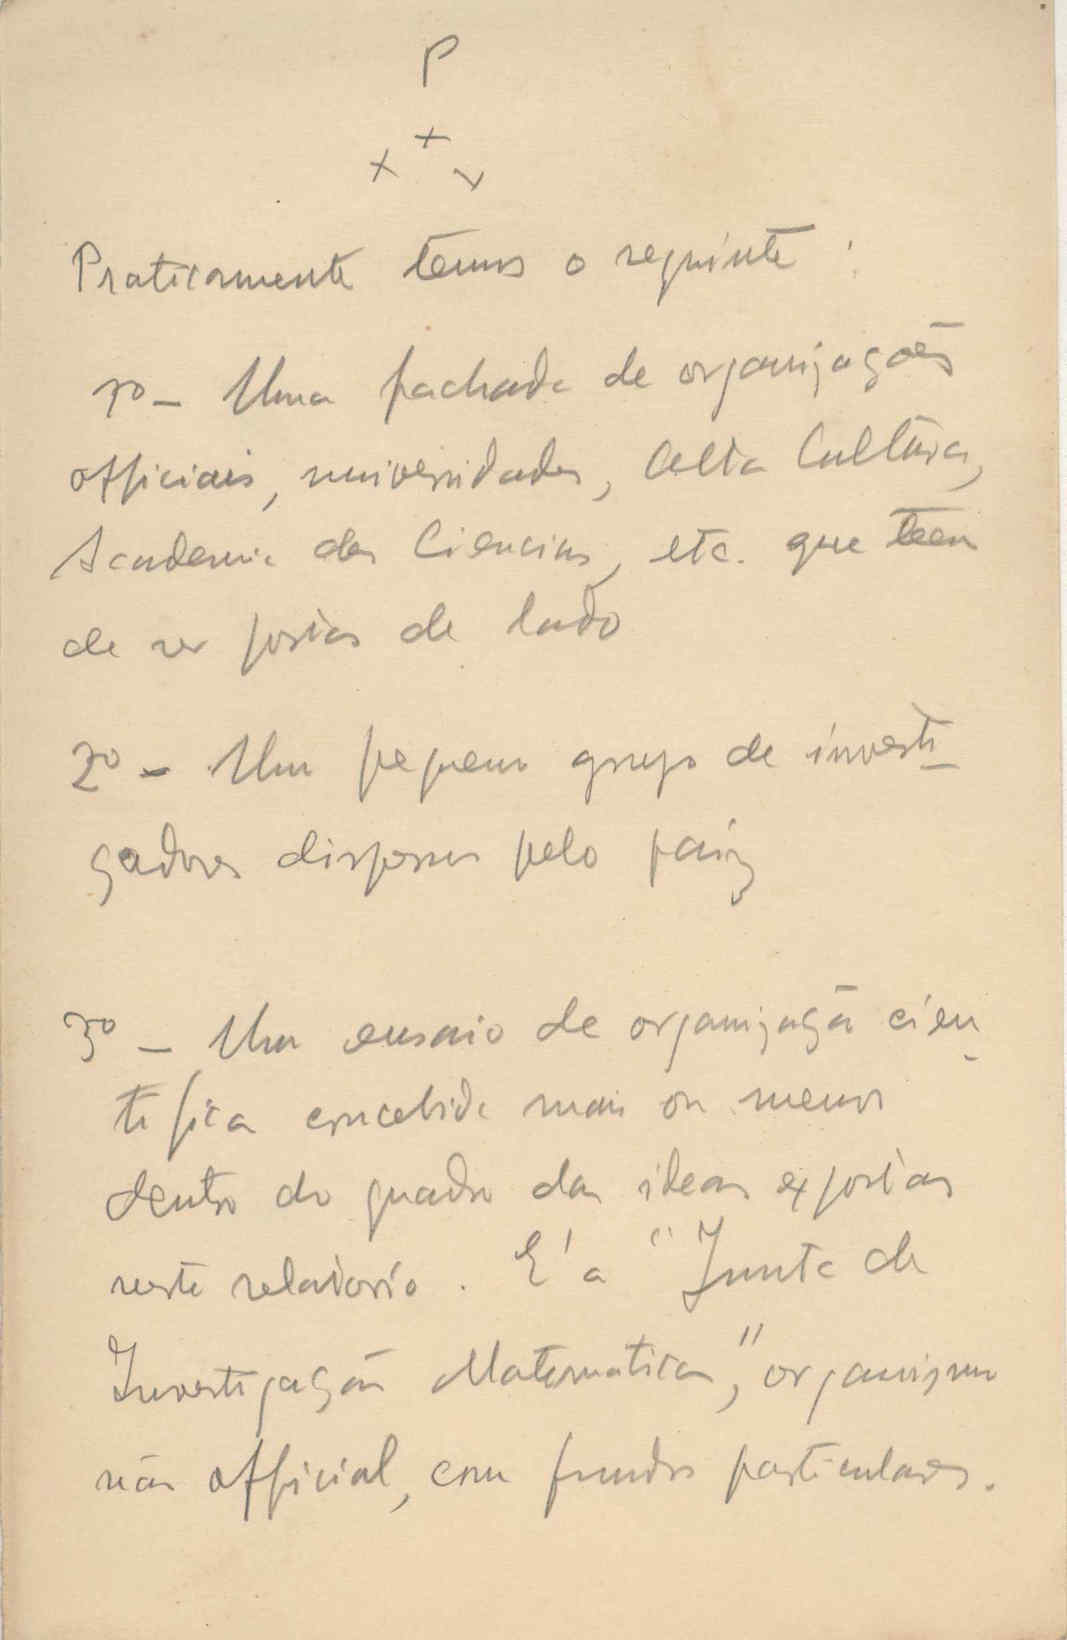 P
+
x x
Praticamente temos o seguinte :
1º - Uma fachada de organizações
officiais, universidades, Alta Cultura,
Academia das Ciencias, etc. que teem
de ser postas de lado
2º - Um pequeno grupo de investi-
gadores dispersos pelo paiz
3º - Um ensaio de organização cien-
tifica concebida mais ou menos
dentro do quadro das ideas expostas
neste relatorio. E' a "Junta de
Investigação Matematica", organismo
não official, com fundos particulares.